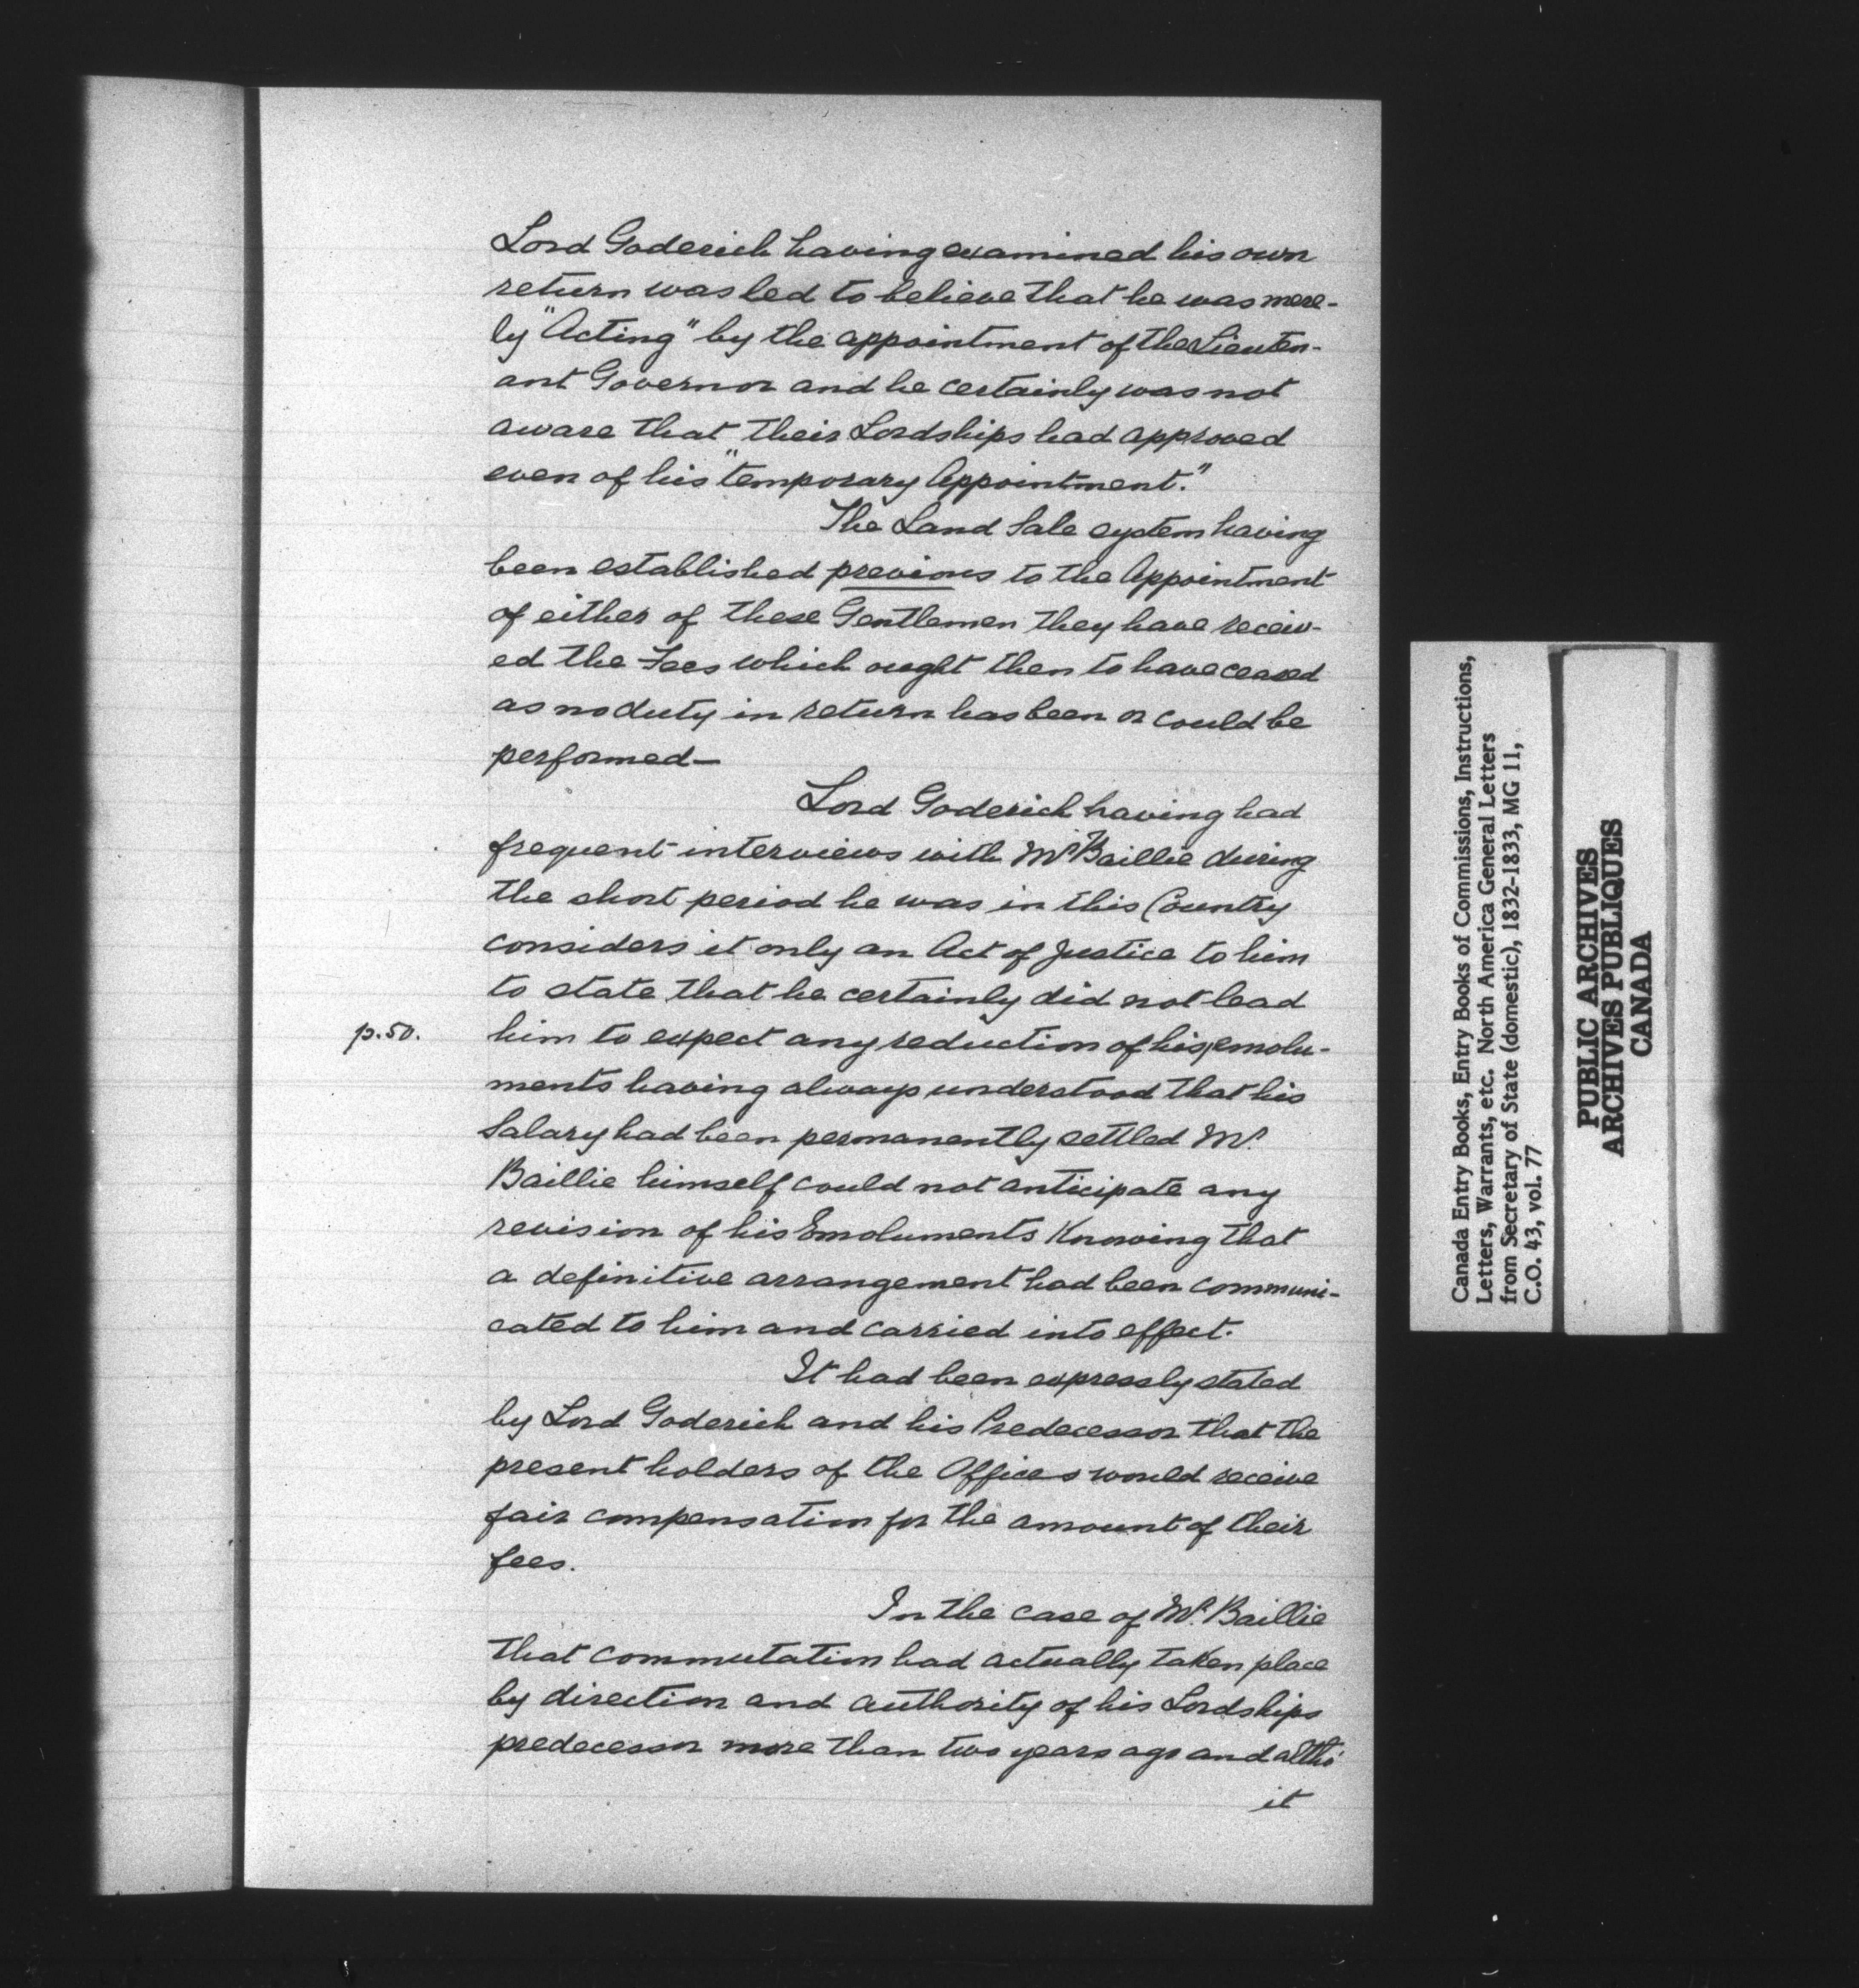 Lord Goderich having examined his own
return was led to believe that he was mere-
ly "Acting" by the appointment of the Lieuten-
ant Governor and he certainly was not
aware that their Lordships had approved
even of his "temporary Appointment."
The Land Sale system having
been established previous to the Appointment
of either of these Gentlemen they have receiv-
ed the Fees which ought then to have ceased
as no duty in return has been or could be
performed—
Lord Goderich having had
frequent interviews with Mr Baillie during
the short period he was in this Country
considers it only an Act of Justice to him
to state that he certainly did not lead
p.50.
him to expect any reduction of his, emolu-
ments having always understood that his
Salary had been permanently settled Mr.
Baillie himself could not anticipate any
revision of his Emoluments Knowing that
a definitive arrangement had been communi-
cated to him and carried into effect.
It had been expressly stated
by Lord Goderich and his Predecessor that the
present holders of the Offices would receive
fair compensation for the amount of their
fees.
In the case of Mr. Baillie
that commutation had actually taken place
by direction and authority of his Lordships
predecessor more than two years ago and altho'
it
Canada Entry Books, Entry Books of Commissions, Instructions,
Letters, Warrants, etc. North America General Letters
from Secretary of State (domestic), 1832-1833, MG 11,
C.O. 43, vol. 77
PUBLIC ARCHIVES
ARCHIVES PUBLIQUES
CANADA